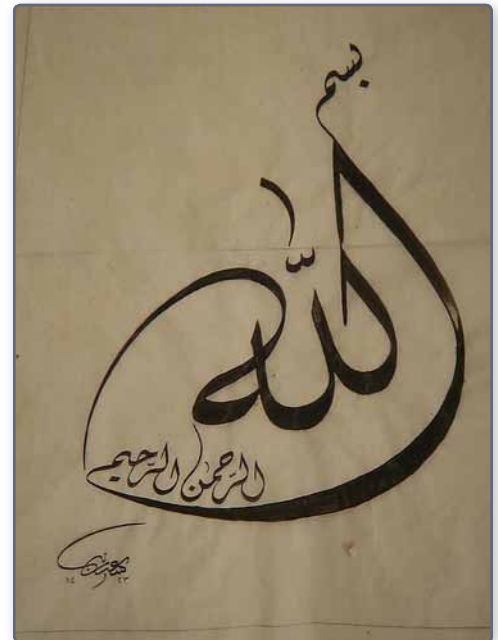 بسم
الله
الرَّحمن الرَّحيم
١٤ ٢٣